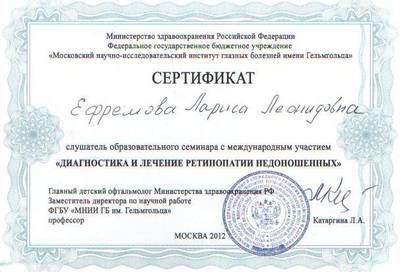 Министерство здравоохранения Российской Федерации
Федеральное государственное бюджетное учреждение
«Московский научно-исследовательский институт глазных болезней имени Гельмгольца»
СЕРТИФИКАТ
Ефремова Лариса Леонидовна
слушатель образовательного семинара с международным участием
«ДИАГНОСТИКА И ЛЕЧЕНИЕ РЕТИНОПАТИИ НЕДОНОШЕННЫХ»
Главный детский офтальмолог Министерства здравоохранения РФ
Заместитель директора по научной работе
ФГБУ «МНИИ ГБ им. Гельмгольца»
профессор
Катаргина Л.А.
МОСКВА 2012